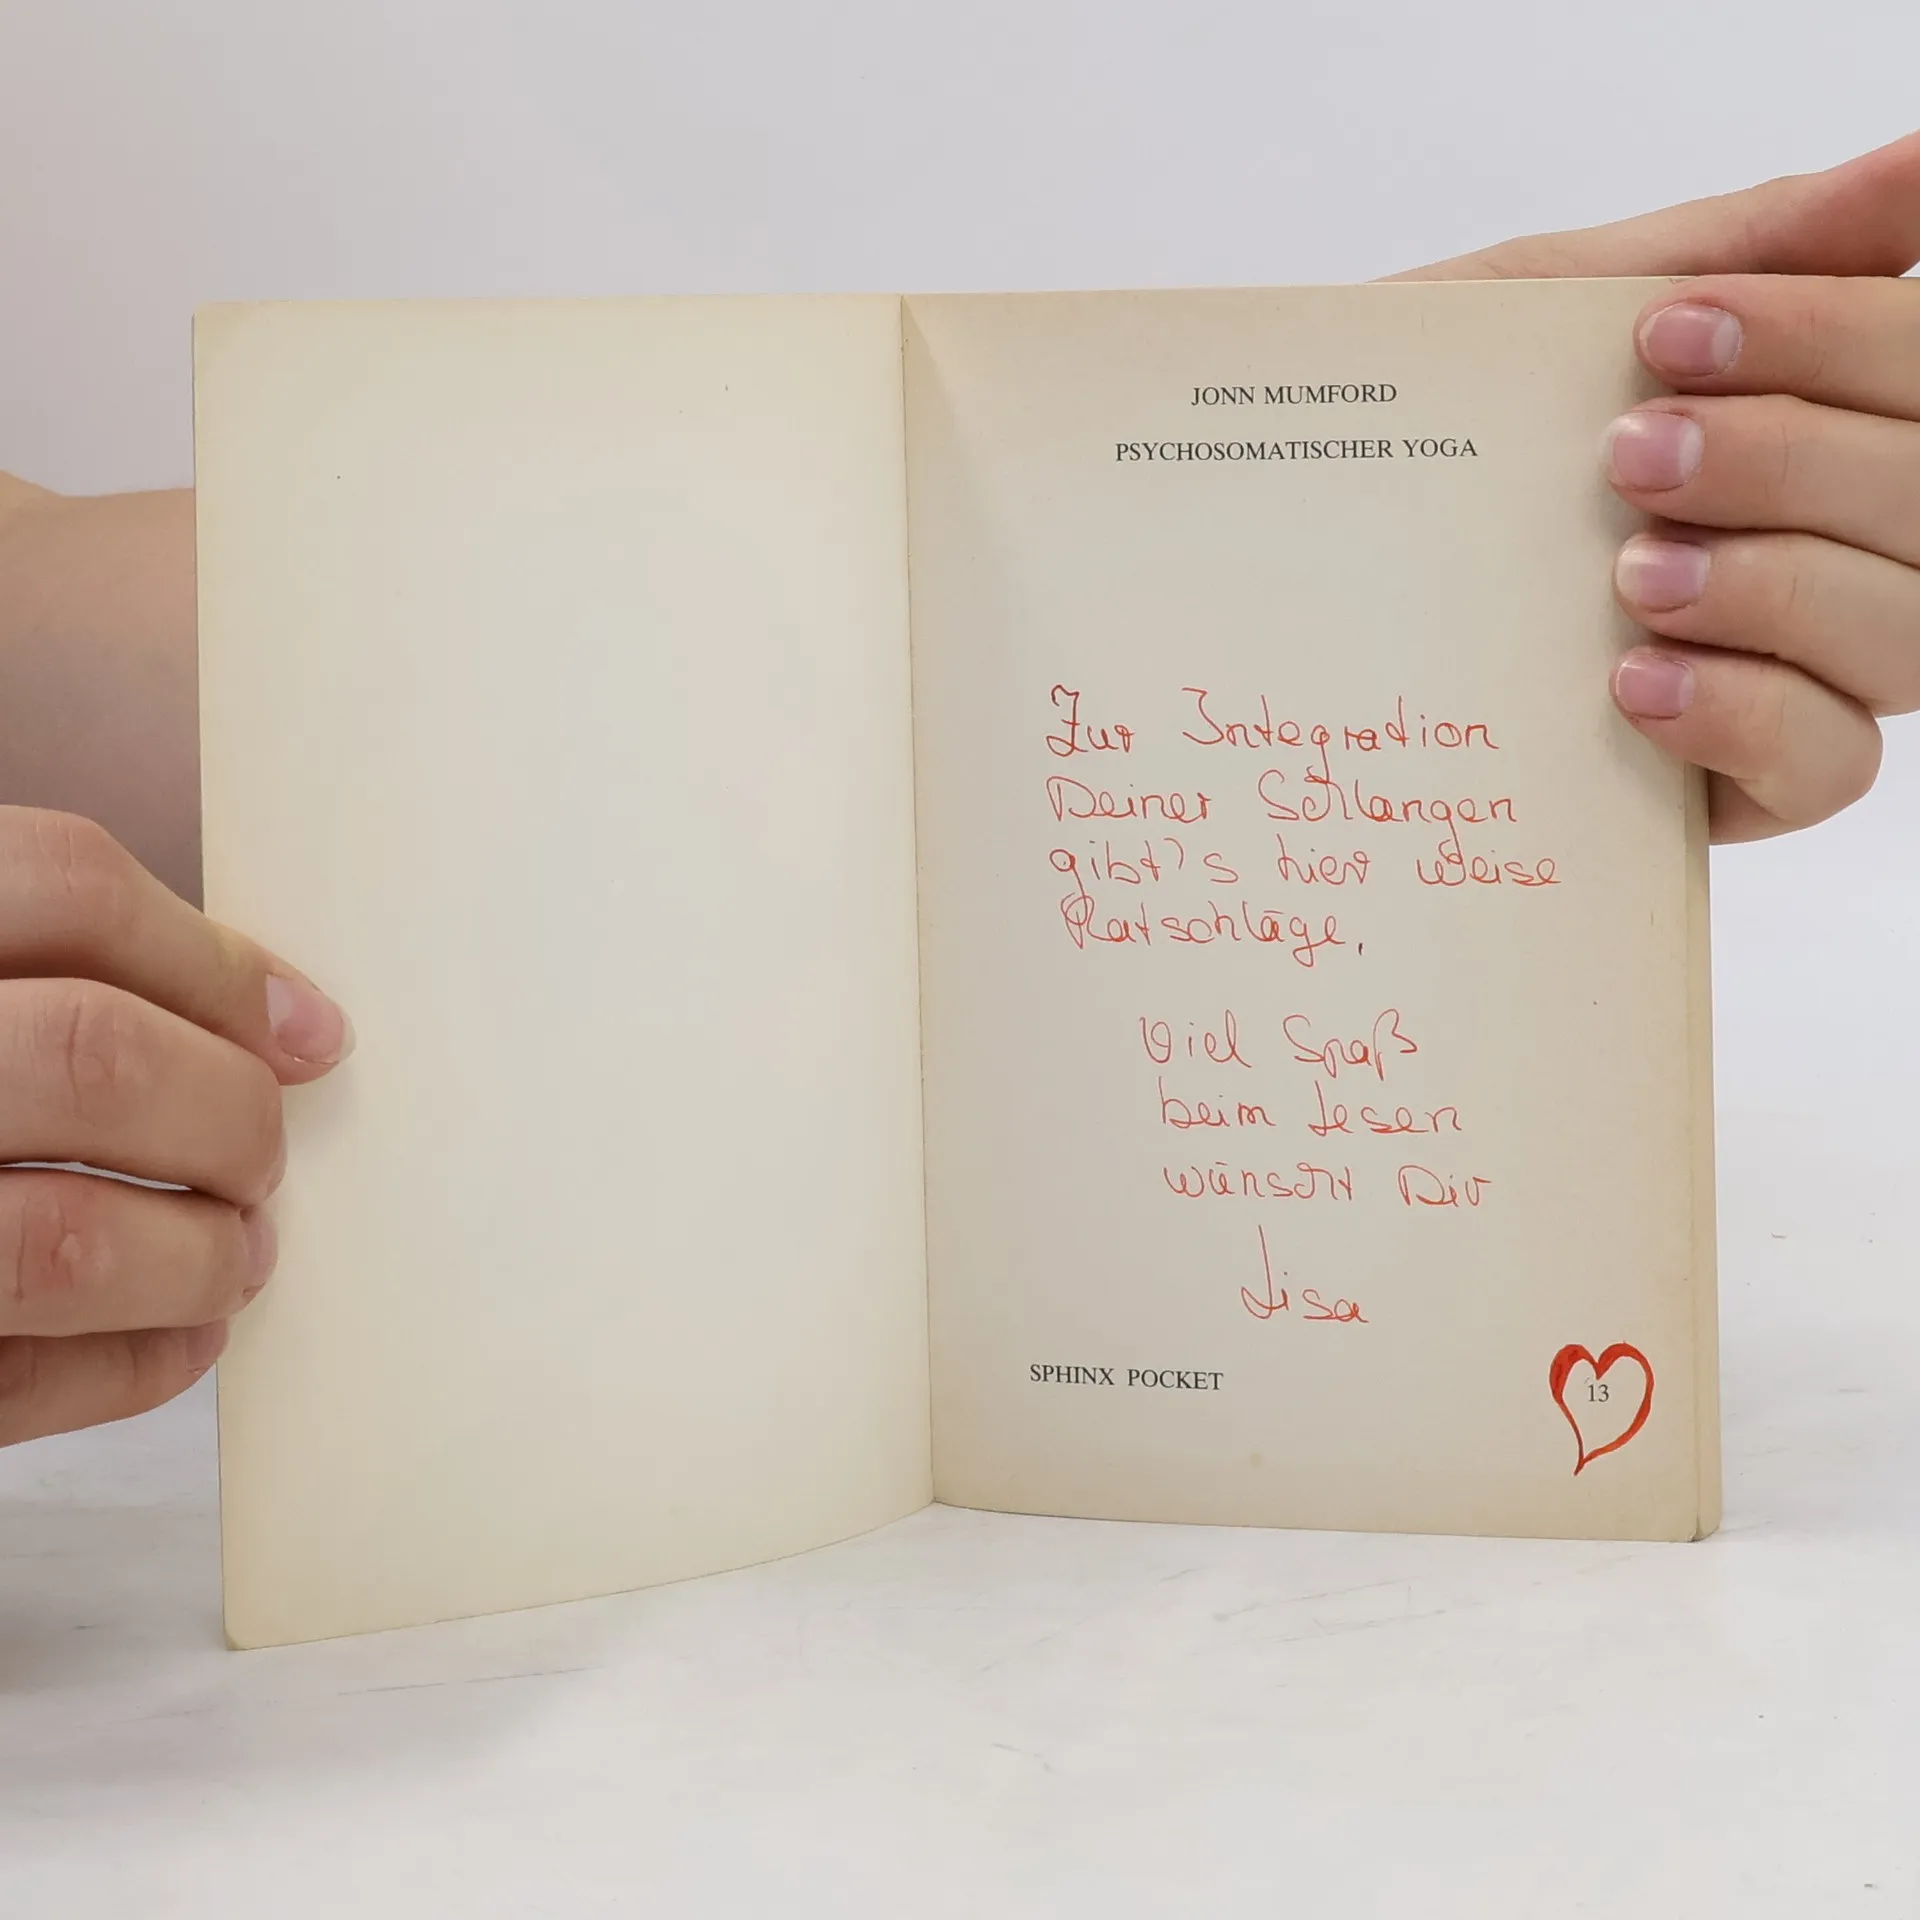 JONN MUMFORD
PSYCHOSOMATISCHER YOGA
Zur Integration
Deiner Schlangen
gibt's hier weise
Ratschläge.
Viel Spaß
beim Lesen
wünscht Dir
Lisa
SPHINX POCKET
13